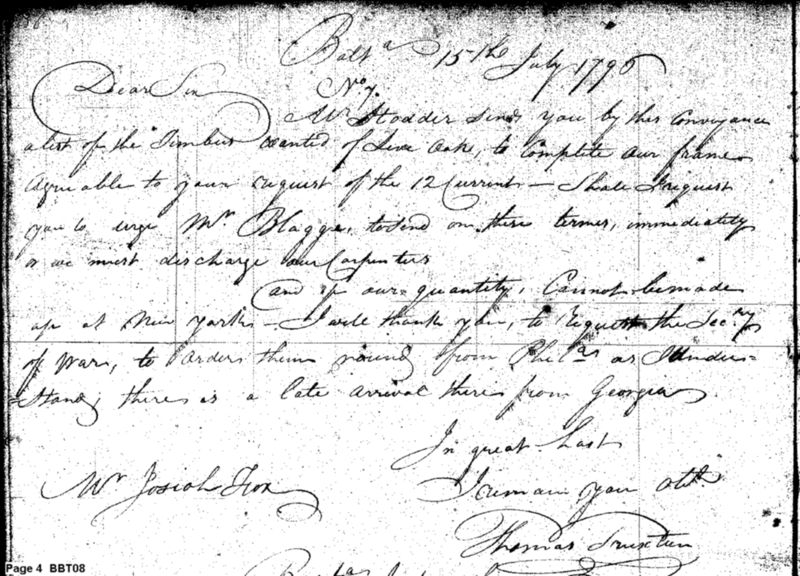 Balt^a 15th July 1796
No 7.
Dear Sir
Mr Stodder Sends you by this Conveyance
a list of the Timbers wanted of Live Oak, to complete our frame
agreeable to your request of the 12 Current — Shall I request
you to urge Mr Blagge, to Send on there terms, immediately
or we must discharge our Carpenters
and if our quantity, Cannot be made
up at New York — I will thank you, to request the Secry
of War, to orders them round from Phila as I under=
=Stand, there is a late arrival there from Georgia
In great hast
I remain your Obt
Mr Josiah Fox
Thomas Truxtun
Page 4 BBT08